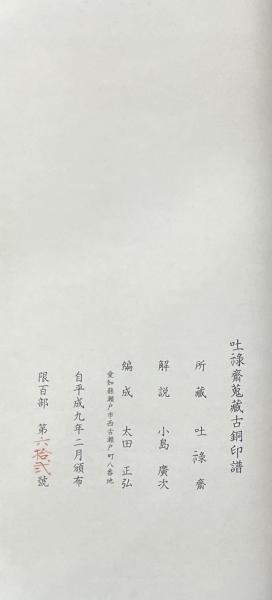 吐祿齋蒐藏古銅印譜
所藏 吐祿齋
解説 小島廣次
編成 太田正弘
愛知縣瀨戸市西古瀨戸町八番地
自平成九年二月頒布
限百部 第六拾弐號